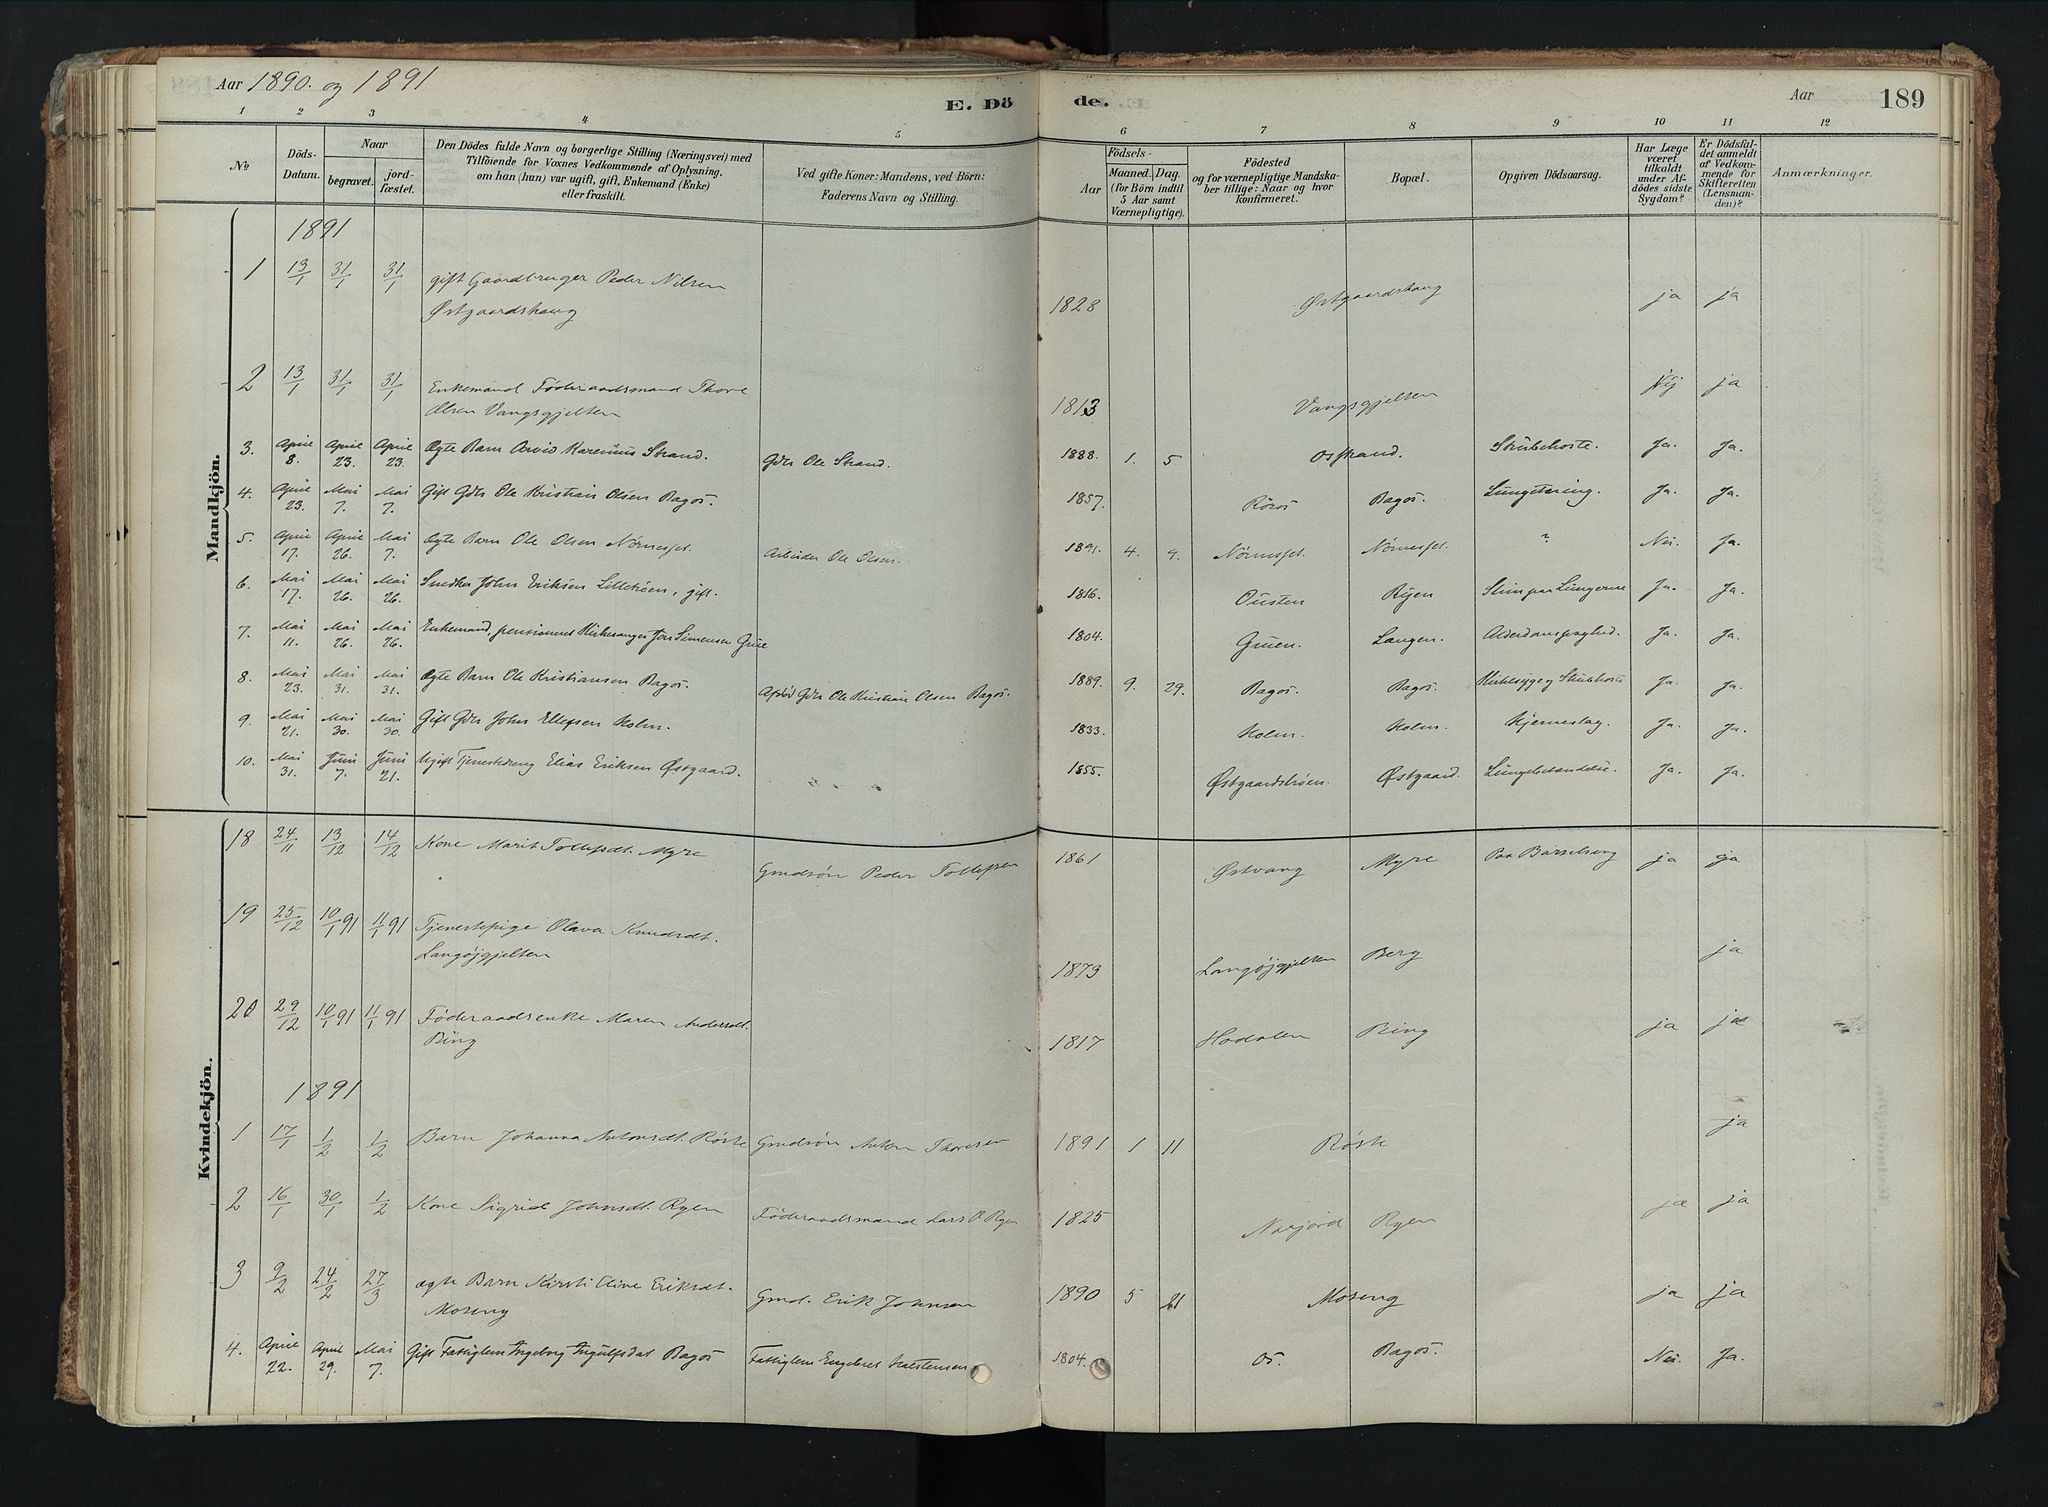 Aar 1890. og 1891
E. Dö de.
Aar 189
1 2 3 4 5 6 7 8 9 10 11 12
No.
Döds-Datum.
Naar
begravet.
jord-fæstet.
Den Dödes fulde Navn og borgerlige Stilling (Næringsvei) med
Tilföiende for Voxnes Vedkommende af Oplysning,
om han (hun) var ugift, gift, Enkemand (Enke)
eller fraskilt.
Ved gifte Koner: Mandens, ved Börn:
Faderens Navn og Stilling.
Födsels-
Aar
Maaned. Dag.
(for Börn indtil
5 Aar samt
Værnepligtige).
Födested
og for værnepligtige Mandska-
ber tillige: Naar og hvor
konfirmeret.
Bopæl.
Opgiven Dödsaarsag.
Har Læge
været
tilkaldt
under Af-
dödes sidste
Sygdom?
Er Dödsfal-
det anmeldt
af Vedkom-
mende for
Skifteretten
(Lensman-
den)?
Anmærkninger.
Mandkjön.
1891
1 13/1 31/1 31/1 gift Gaardbruger Peder Nilsen
Østgaardshaug 1828 Østgaardshaug ja ja
2 13/1 31/1 31/1 Enkemand Føderaadsmand Thore
Olsen Vangsgjelten 1813 Vangsgjelten Nej ja
3. April 8. April 23. April 23. Ægte Barn Arvid Karenius Strand. Gbr Ole Strand. 1888. 1. 5. Osstrand. Strubehoste. Ja. Ja.
4. April 23. Mai 7. Mai 7. Gift Gbr Ole Kristian Olsen Bagos. 1857. Röros Bagos. Lungetæring. Ja. Ja.
5. April 17. April 26. Mai 7. Ægte Barn Ole Olsen Nörvesset. Arbeider Ole Olsen. 1891. 4. 9. ? Nei. Ja.
6. Mai 17. Mai 26. Mai 26. Snedker John Eriksen Lillebröen, gift. 1816. Ousten Ryen Slim paa Lungerne Ja. Ja.
7. Mai 11. Mai 26. Mai 26. Enkemand, pensioneret Kirkesanger Jon Simensen Grue 1804. Gruen. Langen. Alderdomssvaghed. Ja. Ja.
8. Mai 23. Mai 31. Mai 31. Ægte Barn Ole Kristiansen Bagos. Afdöd Gbr Ole Kristian Olsen Bagos. 1889. 9. 29. Bagos. Bagos. Ja. Ja.
9. Mai 21. Mai 30. Mai 30. Gift Gbr John Ellefsen Holm. 1833. Holm. Holm. Hjerneslag. Ja. Ja.
10. Mai 31. Juni 7. Juni 21. Ugift Tjenestedreng Elias Eriksen Østgaard. 1855. Østgaardströen. Østgaard. Lungebetændelse. Ja. Ja.
Kvindekjön.
18 24/11 13/12 14/12 Kone Marit Tollefsdt. Myre Grndsøn Peder Tollefsen 1861 Østvang Myre Paa Barselseng ja ja
19 25/12 10/1 91 11/1 91 Tjenestepige Olava Knudsdt.
Langøjgjelten 1873 Langøjgjelten Berg ja
20 29/12 10/1 91 11/1 91 Føderaadsenke Maren Andersdt.
Ring 1817 Hodalen Ring ja ja
1891
1 17/1 1/2 1/2 Barn Johanna Antonsdt. Røste Grndsøn Anton Thoresen 1891 1 11 Røste ja
2 16/1 30/1 1/2 Kone Sigrid Johnsdt. Ryen Føderaadsmand Lars O. Ryen 1825 Narjord Ryen ja ja
3 9/2 24/2 27/3 ægte Barn Kirsti Oline Eriksdt.
Moseng Grnd. Erik Johnsen 1890 5 21 Moseng ja ja
4. April 22. April 29. Mai 7. Gift Fattiglem Ingeborg Ingulfsdat Bagos Fattiglem Engebret Halstensen 1804. Os. Bagos. Nei. Ja.